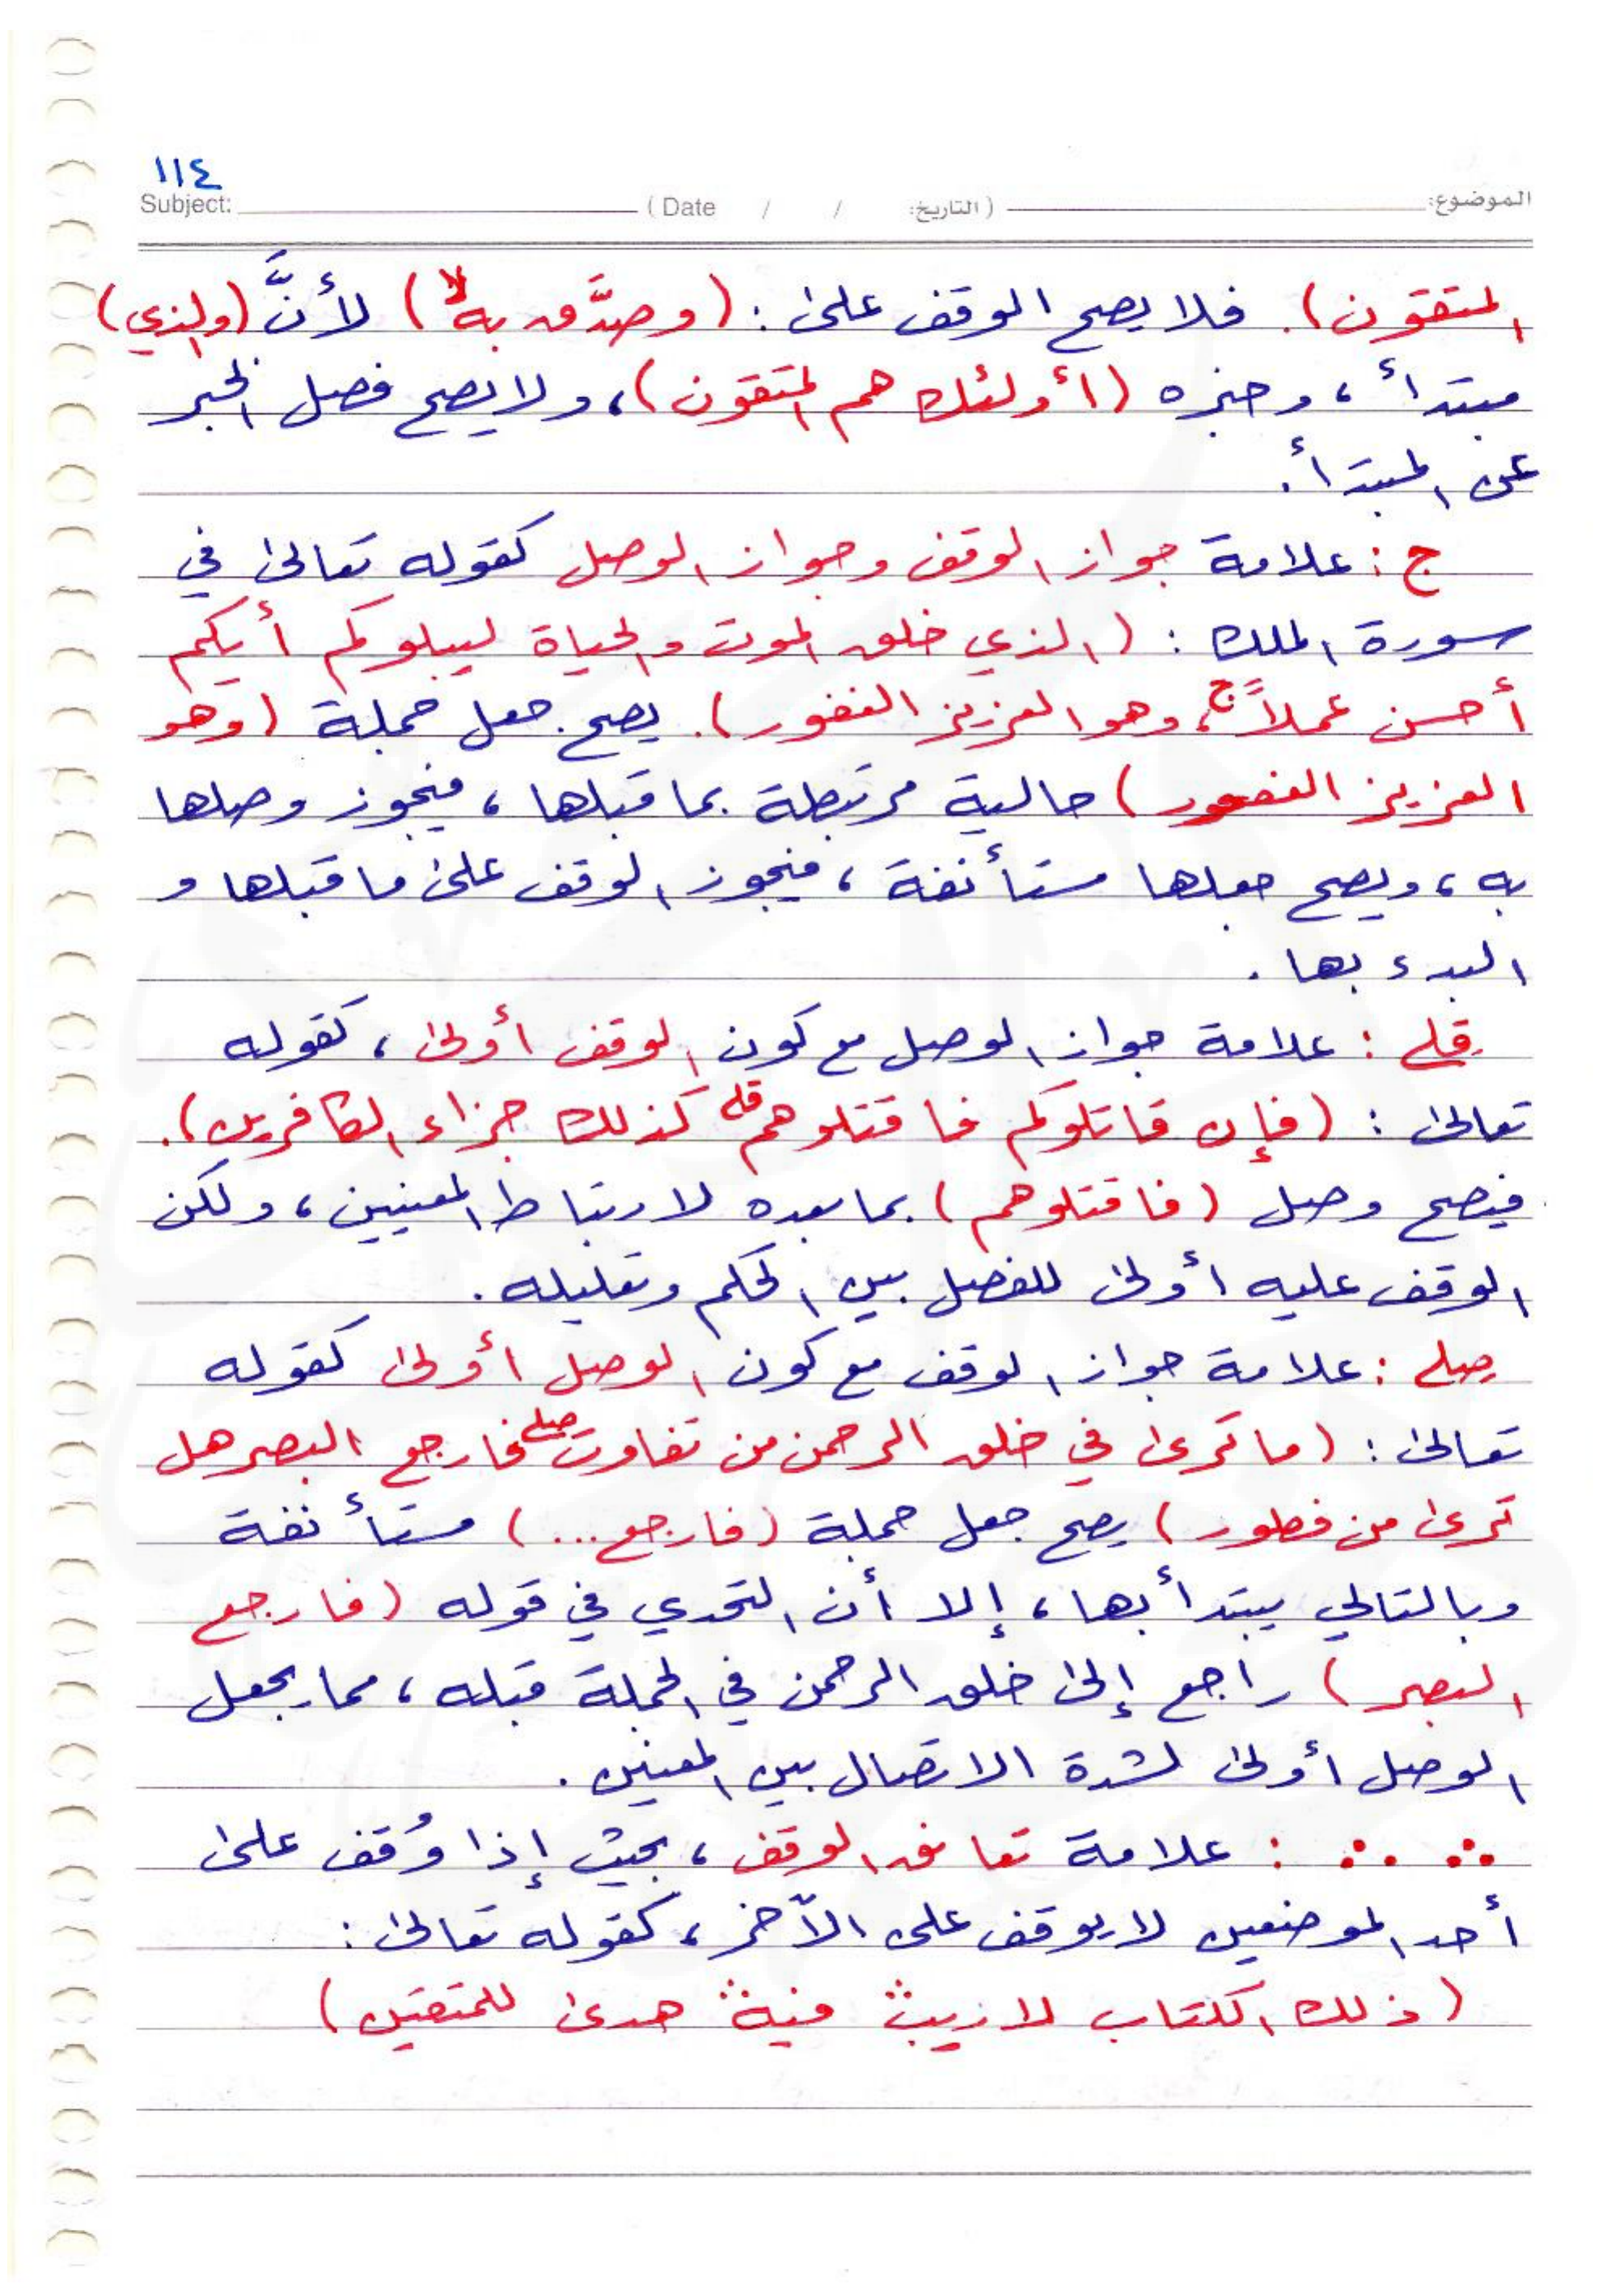 ١١٤
Subject: ( Date / / التاريخ: ) الموضوع:
المتقون). فلا يصح الوقف على: (وصدَّق به ۙلا) لأنَّ (والذي)
مبتدأ، وخبره (أولئك هم المتقون)، ولا يصح فصل الخبر
عن المبتدأ.
ج: علامة جواز الوقف وجواز الوصل كقوله تعالى في
سورة الملك: (الذي خلق الموت والحياة ليبلوكم أيكم
أحسن عملاً ج، وهو العزيز الغفور). يصح جعل جملة (وهو
العزيز الغفور) حالية مرتبطة بما قبلها، فيجوز وصلها
به، ويصح جعلها مستأنفة، فيجوز الوقف على ما قبلها و
البدء بها.
قلى: علامة جواز الوصل مع كون الوقف أولى، كقوله
تعالى: (فإن قاتلوكم فاقتلوهم قلى كذلك جزاء الكافرين).
فيصح وصل (فاقتلوهم) بما بعده لارتباط المعنيين، ولكن
الوقف عليه أولى للفصل بين الحكم وتعليله.
صلى: علامة جواز الوقف مع كون الوصل أولى كقوله
تعالى: (ما ترى في خلق الرحمن من تفاوت صلى فارجع البصر هل
ترى من فطور) يصح جعل جملة (فارجع...) مستأنفة
وبالتالي يبتدأ بها، إلا أن التحدي في قوله (فارجع
البصر) راجع إلى خلق الرحمن في الجملة قبله، مما يجعل
الوصل أولى لشدة الاتصال بين المعنيين.
∴ ∴ : علامة تعانق الوقف، بحيث إذا وُقف على
أحد الموضعين لا يوقف على الآخر، كقوله تعالى:
(ذلك الكتاب لا ريب ∴ فيه ∴ هدى للمتقين)